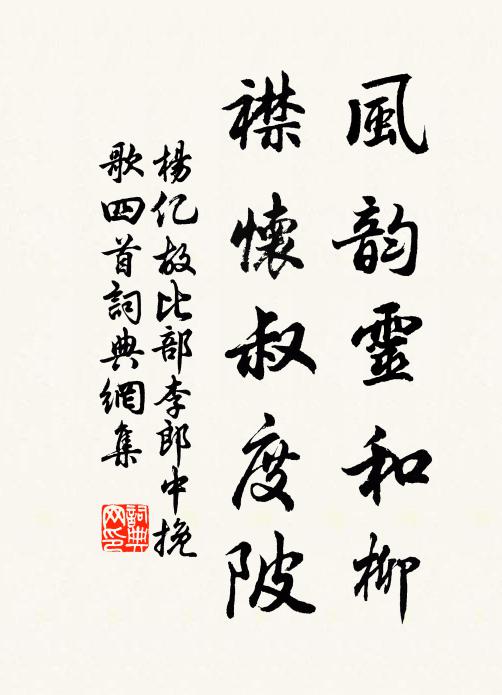 風韵靈和柳
襟懷叔度陂
楊亿故比部李郎中挽
歌四首詞典網集
詞典
网印